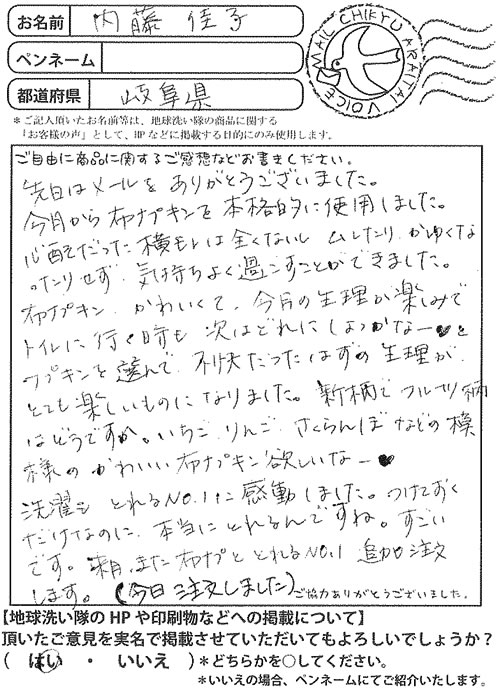 お名前 内藤 佳子
MAIL CHIKYU ARAITAI VOICE
ペンネーム
都道府県 岐阜県
*ご記入頂いたお名前等は、地球洗い隊の商品に関する
「お客様の声」として、HPなどに掲載する目的にのみ使用します。
ご自由に商品に関するご感想などお書きください。
先日はメールをありがとうございました。
今月から布ナプキンを本格的に使用しました。
心配だった横モレは全くないし ムレたり、かゆくな
ったりせず 気持ちよく過ごすことができました。
布ナプキン かわいくて、今月の生理が楽しみで
トイレに行く時も 次はどれにしよっかなー♥と
ナプキンを選んで 不快だったはずの生理が
とても楽しいものになりました。新柄で フルーツ柄
はどうですか。いちご りんご さくらんぼ などの模
様の かわいい布ナプキン欲しいなー♥
洗濯も とれるNO.1に感動しました。つけておく
だけなのに、本当にとれるんですね。すごい
です。来月、また布ナプと とれるNO.1 追加注文
します。(今日注文しました)
ご協力ありがとうございました。
【地球洗い隊のHPや印刷物などへの掲載について】
頂いたご意見を実名で掲載させていただいてもよろしいでしょうか?
( はい ・ いいえ )*どちらかを○してください。
*いいえの場合、ペンネームにてご紹介いたします。